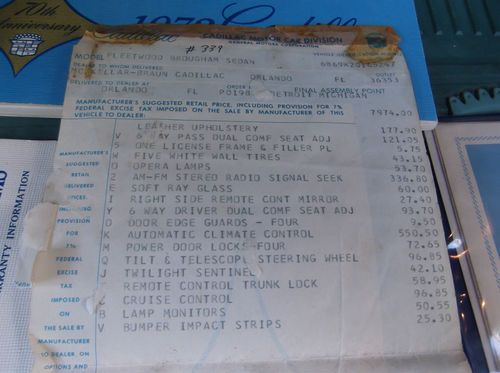 70th Anniversary
1972 Cadillac
Cadillac
CADILLAC MOTOR CAR DIVISION
GENERAL MOTORS CORPORATION
# 339
MODEL FLEETWOOD BROUGHAM SEDAN
DEALER TO WHOM DELIVERED
MCKELLAR-BRAUN CADILLAC ORLANDO FL 36553
OUTLET
DEALER DELIVERED AT
ORLANDO FL P0198 DETROIT MICHIGAN
FINAL ASSEMBLY POINT
MANUFACTURER'S SUGGESTED RETAIL PRICE, INCLUDING PROVISION FOR 7%
FEDERAL EXCISE TAX IMPOSED ON THE SALE BY MANUFACTURER OF THIS
VEHICLE TO DEALER: 7974.00
LEATHER UPHOLSTERY 177.90
V 6 WAY PASS DUAL COMF SEAT ADJ 121.05
S ONE LICENSE FRAME & FILLER PL 5.75
W FIVE WHITE WALL TIRES 43.15
O OPERA LAMPS 53.70
2 AM-FM STEREO RADIO SIGNAL SEEK 336.80
E SOFT RAY GLASS 60.00
I RIGHT SIDE REMOTE CONT MIRROR 27.40
Y 6 WAY DRIVER DUAL COMF SEAT ADJ 93.70
D DOOR EDGE GUARDS - FOUR 9.50
K AUTOMATIC CLIMATE CONTROL 550.50
M POWER DOOR LOCKS-FOUR 72.65
Q TILT & TELESCOPE STEERING WHEEL 96.85
J TWILIGHT SENTINEL 42.10
REMOTE CONTROL TRUNK LOCK 58.95
Z CRUISE CONTROL 96.85
B LAMP MONITORS 50.55
V BUMPER IMPACT STRIPS 25.30
MANUFACTURER'S
SUGGESTED
RETAIL
DELIVERED
PRICES,
INCLUDING
PROVISION
FOR
7%
FEDERAL
EXCISE
TAX
IMPOSED
ON
THE SALE BY
MANUFACTURER
TO DEALER ON
OPTIONS AND
WARRANTY INFORMATION